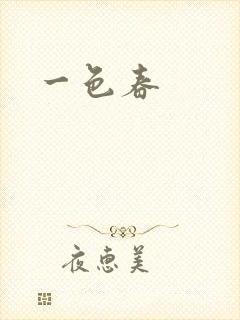 一色春
夜惠美